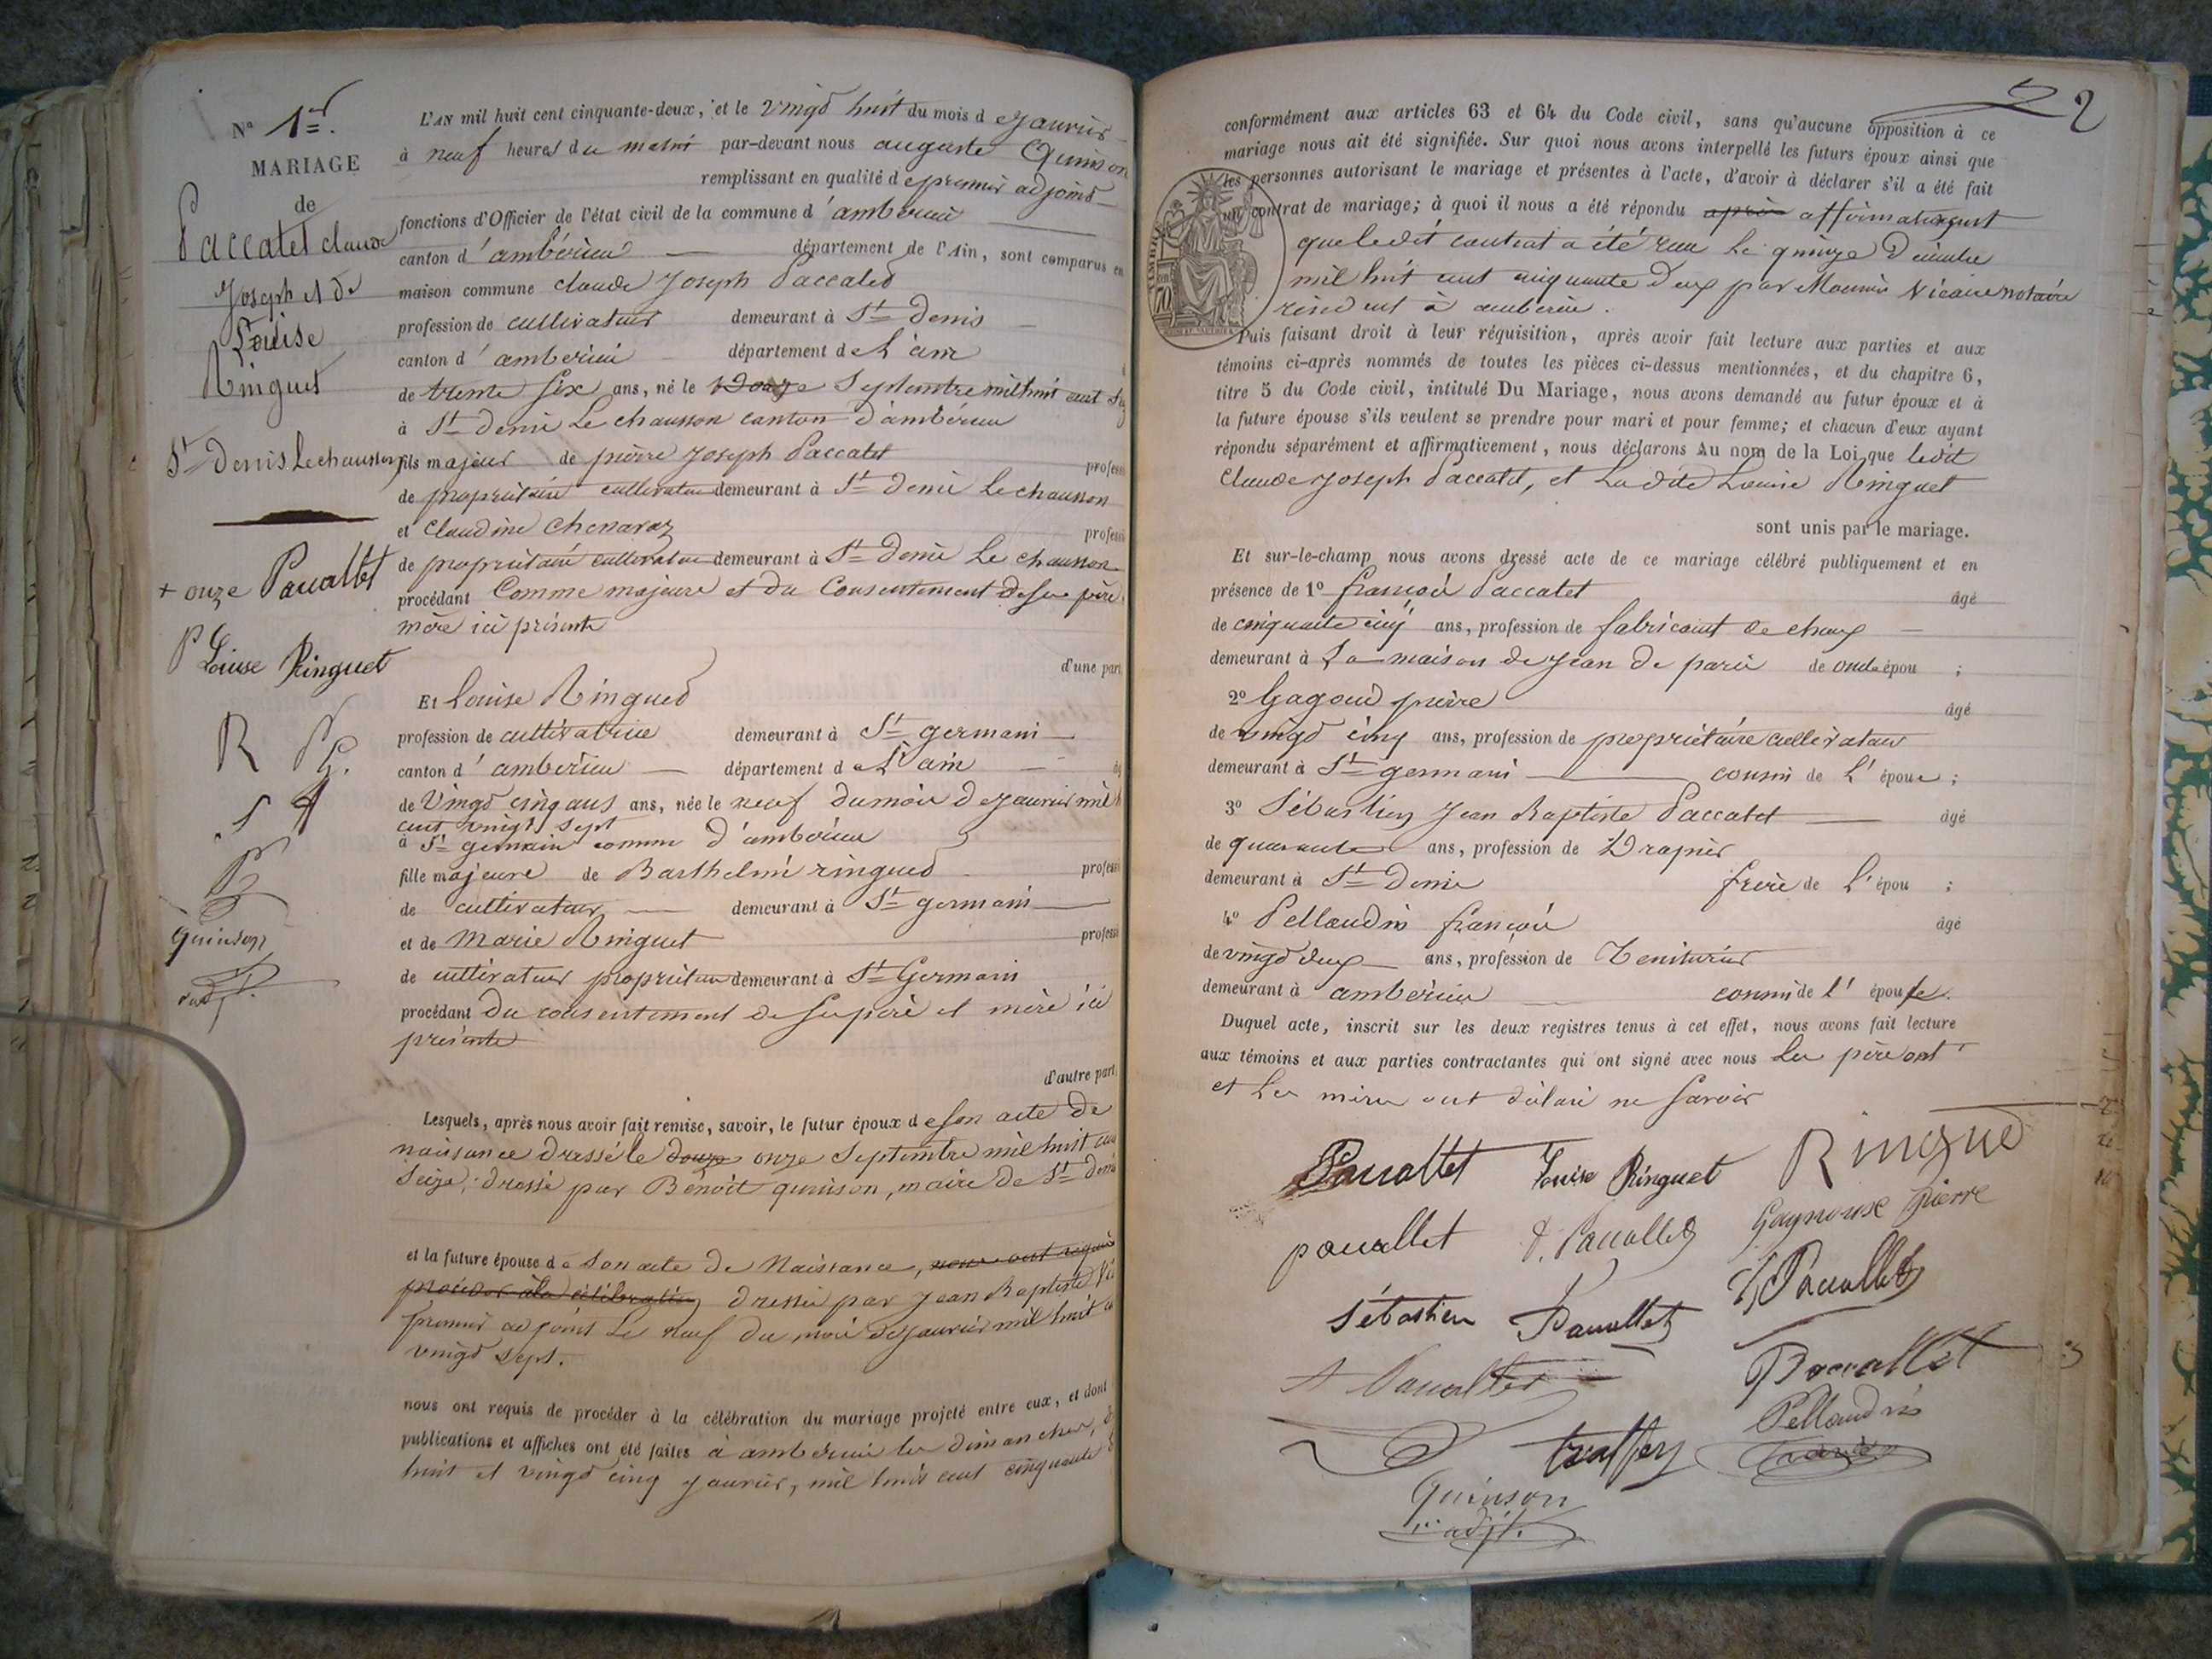 N° 1er.
MARIAGE
de
Paccatet claude
Joseph et de
Louise
Ringuet
St Denis Lechausson
+ onze Paccallet
P
Louise Ringuet
R P G.
S
Quinson
L'AN mil huit cent cinquante-deux, et le vingt huit du mois de janvier
à neuf heures du matin par-devant nous auguste Quinson
remplissant en qualité de premier adjoint
fonctions d'Officier de l'état civil de la commune d'ambérieu
canton d'ambérieu département de l'Ain, sont comparus en
maison commune claude Joseph Paccatet
profession de cultivateur demeurant à St Denis
canton d'ambérieu département de L'ain
de trente six ans, né le Douze Septembre mil huit cent
à St denis Le chausson canton d'ambérieu
fils majeur de pierre Joseph Paccatet profess
de propriétaire cultivateur demeurant à St denis Le chausson
et claudine chenavaz profess
de propriétaire cultivateur demeurant à St Denis Le chausson
procédant Comme majeure et du Consentement de ses père
mère ici présents
d'une part
Et Louise Ringued
profession de cultivatrice demeurant à St germain
canton d'ambérieu département de L'ain
de Vingt cinq ans ans, née le neuf du mois de janvier mil h
cent vingt sept
à St germain comm d'ambérieu
fille majeure de Barthelmi ringued profess
de cultivateur demeurant à St germain
et de Marie Ringuet profess
de cultivateur propriétaire demeurant à St Germain
procédant du consentement de ses père et mère ici
présents
d'autre part.
Lesquels, après nous avoir fait remise, savoir, le futur époux de son acte de
naissance dressé le douze onze Septembre mil huit cent
Seize, dressé par Benoît quinson, maire de St denis
et la future épouse de son acte de Naissance, nous ont requis
procéder à la célébration dressé par Jean Baptiste
premier adjoint le neuf du mois de janvier mil huit c
vingt sept.
nous ont requis de procéder à la célébration du mariage projeté entre eux, et dont
publications et affiches ont été faites à ambérieu les dimanches,
huit et vingt cinq janvier, mil huit cent cinquante
2
conformément aux articles 63 et 64 du Code civil, sans qu'aucune opposition à ce
mariage nous ait été signifiée. Sur quoi nous avons interpellé les futurs époux ainsi que
les personnes autorisant le mariage et présentes à l'acte, d'avoir à déclarer s'il a été fait
un contrat de mariage; à quoi il nous a été répondu après affirmativement
que ledit contrat a été reçu Le quinze Décembre
mil huit cent cinquante Deux par Me Vicaire notaire
résident à ambérieu.
TIMBRE
70
Puis faisant droit à leur réquisition, après avoir fait lecture aux parties et aux
témoins ci-après nommés de toutes les pièces ci-dessus mentionnées, et du chapitre 6,
titre 5 du Code civil, intitulé Du Mariage, nous avons demandé au futur époux et à
la future épouse s'ils veulent se prendre pour mari et pour femme; et chacun d'eux ayant
répondu séparément et affirmativement, nous déclarons Au nom de la Loi que ledit
Claude Joseph Paccatet, et Ladite Louise Ringuet
sont unis par le mariage.
Et sur-le-champ nous avons dressé acte de ce mariage célébré publiquement et en
présence de 1° françois Paccatet âgé
de cinquante cinq ans, profession de fabricant de chaux
demeurant à La maison de Jean de paris de oncle épou ;
2° Gagoud pierre âgé
de vingt cinq ans, profession de propriétaire cultivateur
demeurant à St germain cousin de L'épouse ;
3° Sébastien Jean Baptiste Paccatet âgé
de quarante ans, profession de Drapier
demeurant à St Denis frère de L'épou ;
4° Pellaudin françois âgé
de vingt deux ans, profession de Teinturier
demeurant à ambérieu cousin de l'épouse.
Duquel acte, inscrit sur les deux registres tenus à cet effet, nous avons fait lecture
aux témoins et aux parties contractantes qui ont signé avec nous Les père ont
et Les mères ont déclaré ne Savoir
Paccallet Louise Ringuet Ringued
paccallet Paccallet Gagneux pierre
Sébastien Paccallet J Paccallet
Paccallet Paccallet
Pellaudin
Quinson
1er adjt.